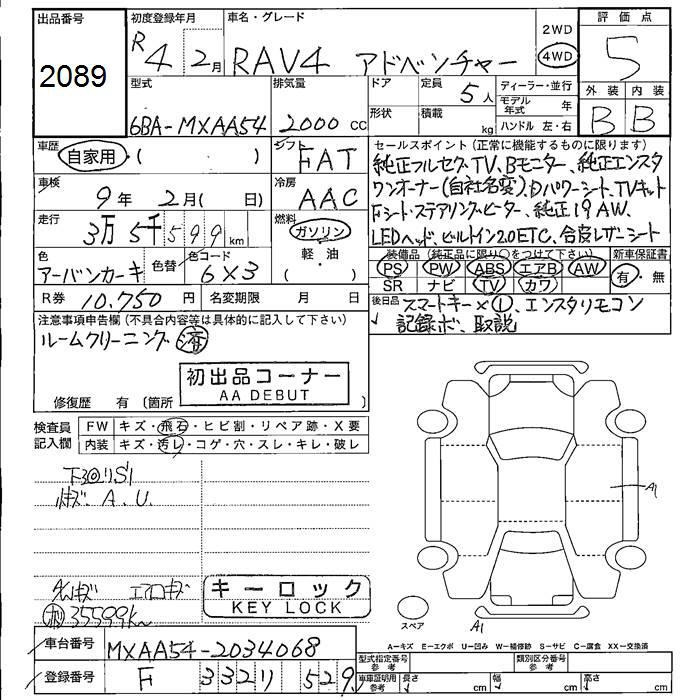 出品番号 初度登録年月 車名・グレード 評価点
2089 R4 2月 RAV4 アドベンチャー 2WD 4WD 5
型式 排気量 ドア 定員 5人 ディーラー・並行 外装 内装
6BA-MXAA54 2000cc 形状 積載 kg モデル年式 年 ハンドル 左・右 B B
車歴 自家用・( ) シフト FAT セールスポイント(正常に機能するものに限ります)
純正フルセグTV、Bモニター、純正エンスタ
車検 9年 2月( 日) 冷房 AAC ワンオーナー(自社名変)、Dパワーシート、TVキット
走行 3万5千599km 燃料 ガソリン・軽・油 ( ) Fシート・ステアリングヒーター、純正19AW、
LEDヘッド、ビルトイン2.0ETC、合皮レザーシート
色 アーバンカーキ 色替 色コード 6X3 装備品(純正品に限り○をつけて下さい) 新車保証書
PS PW ABS エアB AW 有・無
SR ナビ TV カワ
R券 10,750円 名変期限 月 日 後日品 スマートキー×①、エンスタリモコン
記録ボ、取説
注意事項申告欄(不具合内容等は具体的に記入して下さい)
ルームクリーニング済
初出品コーナー
AA DEBUT
修復歴 有(箇所 )
検査員記入欄 FW キズ・飛石・ヒビ割・リペア跡・X要
内装 キズ・汚レ・コゲ・穴・スレ・キレ・破レ
下回りS1
キズ.A.U.
エアロキズ
キーロック
KEY LOCK
35599km
A1
スペア
A1
A=キズ E=エクボ U=凹み W=補修跡 S=サビ C=腐食 XX=交換済
車台番号 MXAA54-2034068
登録番号 F 332 り 529
型式指定番号 参考 類別区分番号 参考
車庫証明用 参考 長さ cm 幅 cm 高さ cm